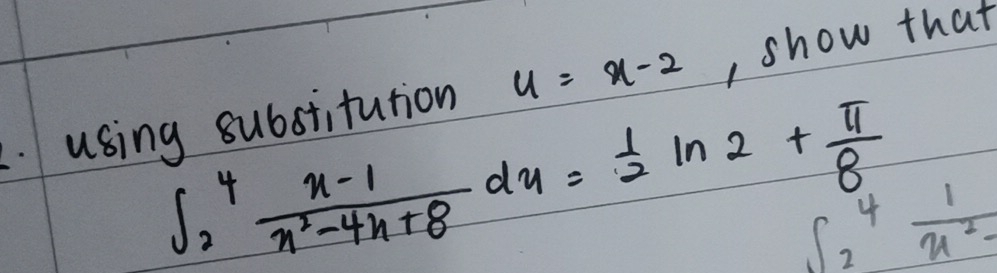 2. using substitution u = x-2, show that
∫₂⁴ x-1/x²-4x+8 dx = 1/2 ln 2 + π/8
∫₂⁴ 1/x²-